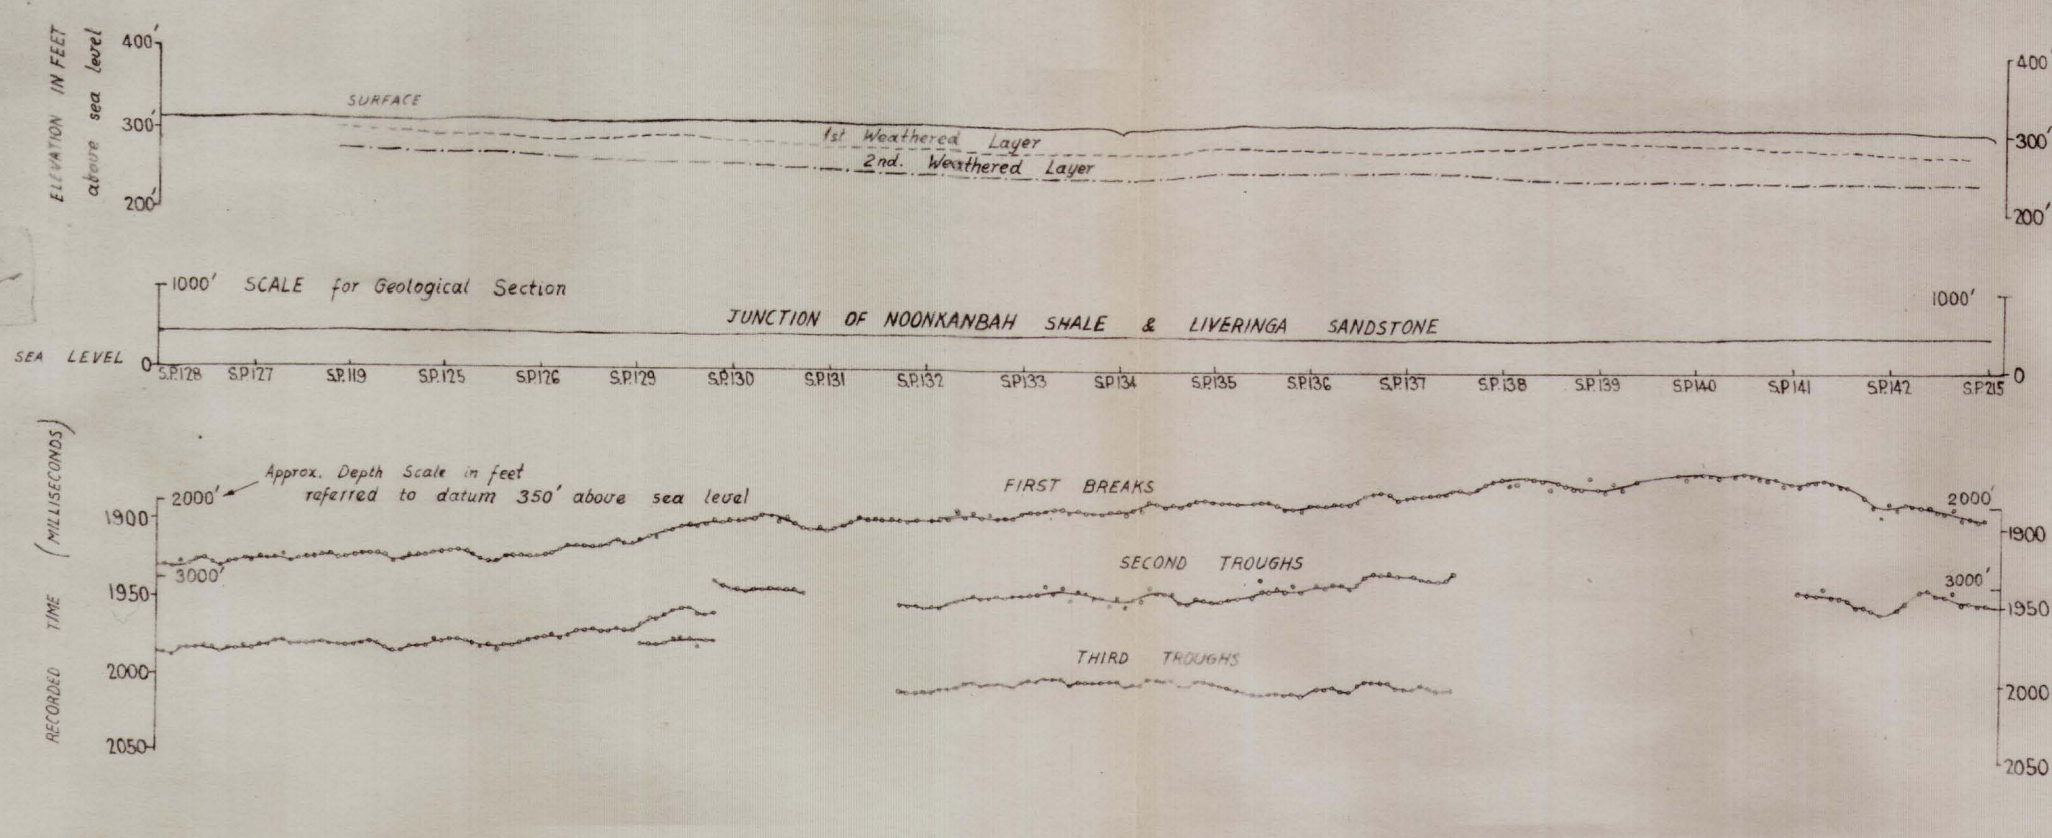 ELEVATION IN FEET
above sea level
400'
300'
200'
SURFACE
1st Weathered Layer
2nd. Weathered Layer
400'
300'
200'
1000' SCALE for Geological Section
JUNCTION OF NOONKANBAH SHALE & LIVERINGA SANDSTONE
1000'
SEA LEVEL 0
0
S.P.128 S.P.127 S.P.119 S.P.125 S.P.126 S.P.129 S.P.130 S.P.131 S.P.132 S.P.133 S.P.134 S.P.135 S.P.136 S.P.137 S.P.138 S.P.139 S.P.140 S.P.141 S.P.142 S.P.215
RECORDED TIME (MILLISECONDS)
Approx. Depth Scale in feet
referred to datum 350' above sea level
2000'
1900
3000'
1950
2000
2050
FIRST BREAKS
SECOND TROUGHS
THIRD TROUGHS
2000'
1900
3000'
1950
2000
2050